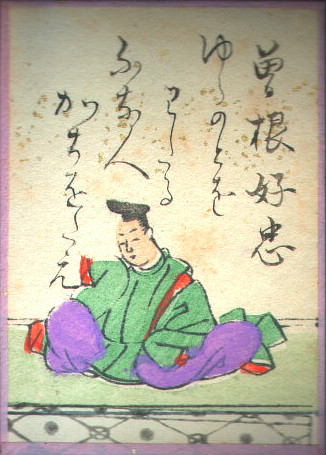 曽根好忠
ゆらのとを
わたる
ふな人
かぢをたえ